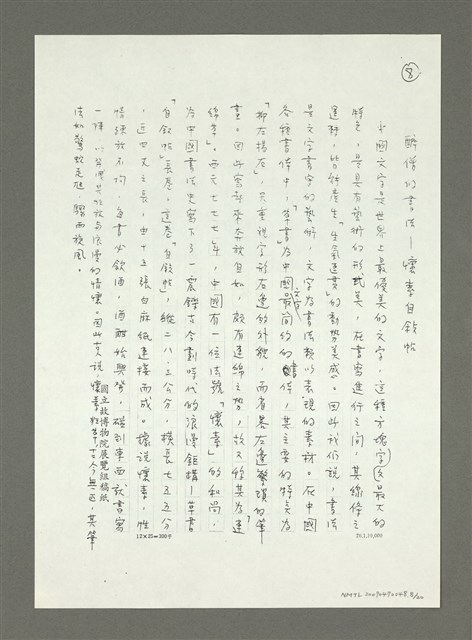 ⑧
醉僧的書法—懷素自敘帖
中國文字是世界上最優美的文字，這種方塊字又最大的
特色，是具有藝術的形式美，在書寫進行之間，其線條之
運轉，皆能產生「生氣連貫」的動勢美感。因此我們說，書法
是文字書字的藝術，文字為書法賴以表現的素材。在中國
各種書體中，「草書」為中國文字最簡約的書體，其主要的特点為
「抑左揚右」，只重說字形右邊的外貌，而省畧左邊繁瑣的筆
畫。因此寫起來奔放自如，故有連綿之勢，故又稱其為「連
綿草」。西元七七七年，中國有一位法號「懷素」的和尚，
為中國書法史寫下了一震鑠古今劃時代的浪漫鉅構—草書
「自敘帖」長卷。這卷「自敘帖」，縱二八·三公分，橫長七五五公分
，近四丈之長，由十五張白麻紙連接而成。據說懷素，性
情疎放不拘，每書必飲酒，酒酣始興發，碰到東西就書寫
一陣，以發洩其狂放與浪漫的情懷。因此有說懷素狂草古今無匹，其筆
法如驚蛇走虺，驟雨旋風。
國立故宮博物院展覽組稿紙
12×25=300字
76.1.10,000
NMTL 20090470048 8/26